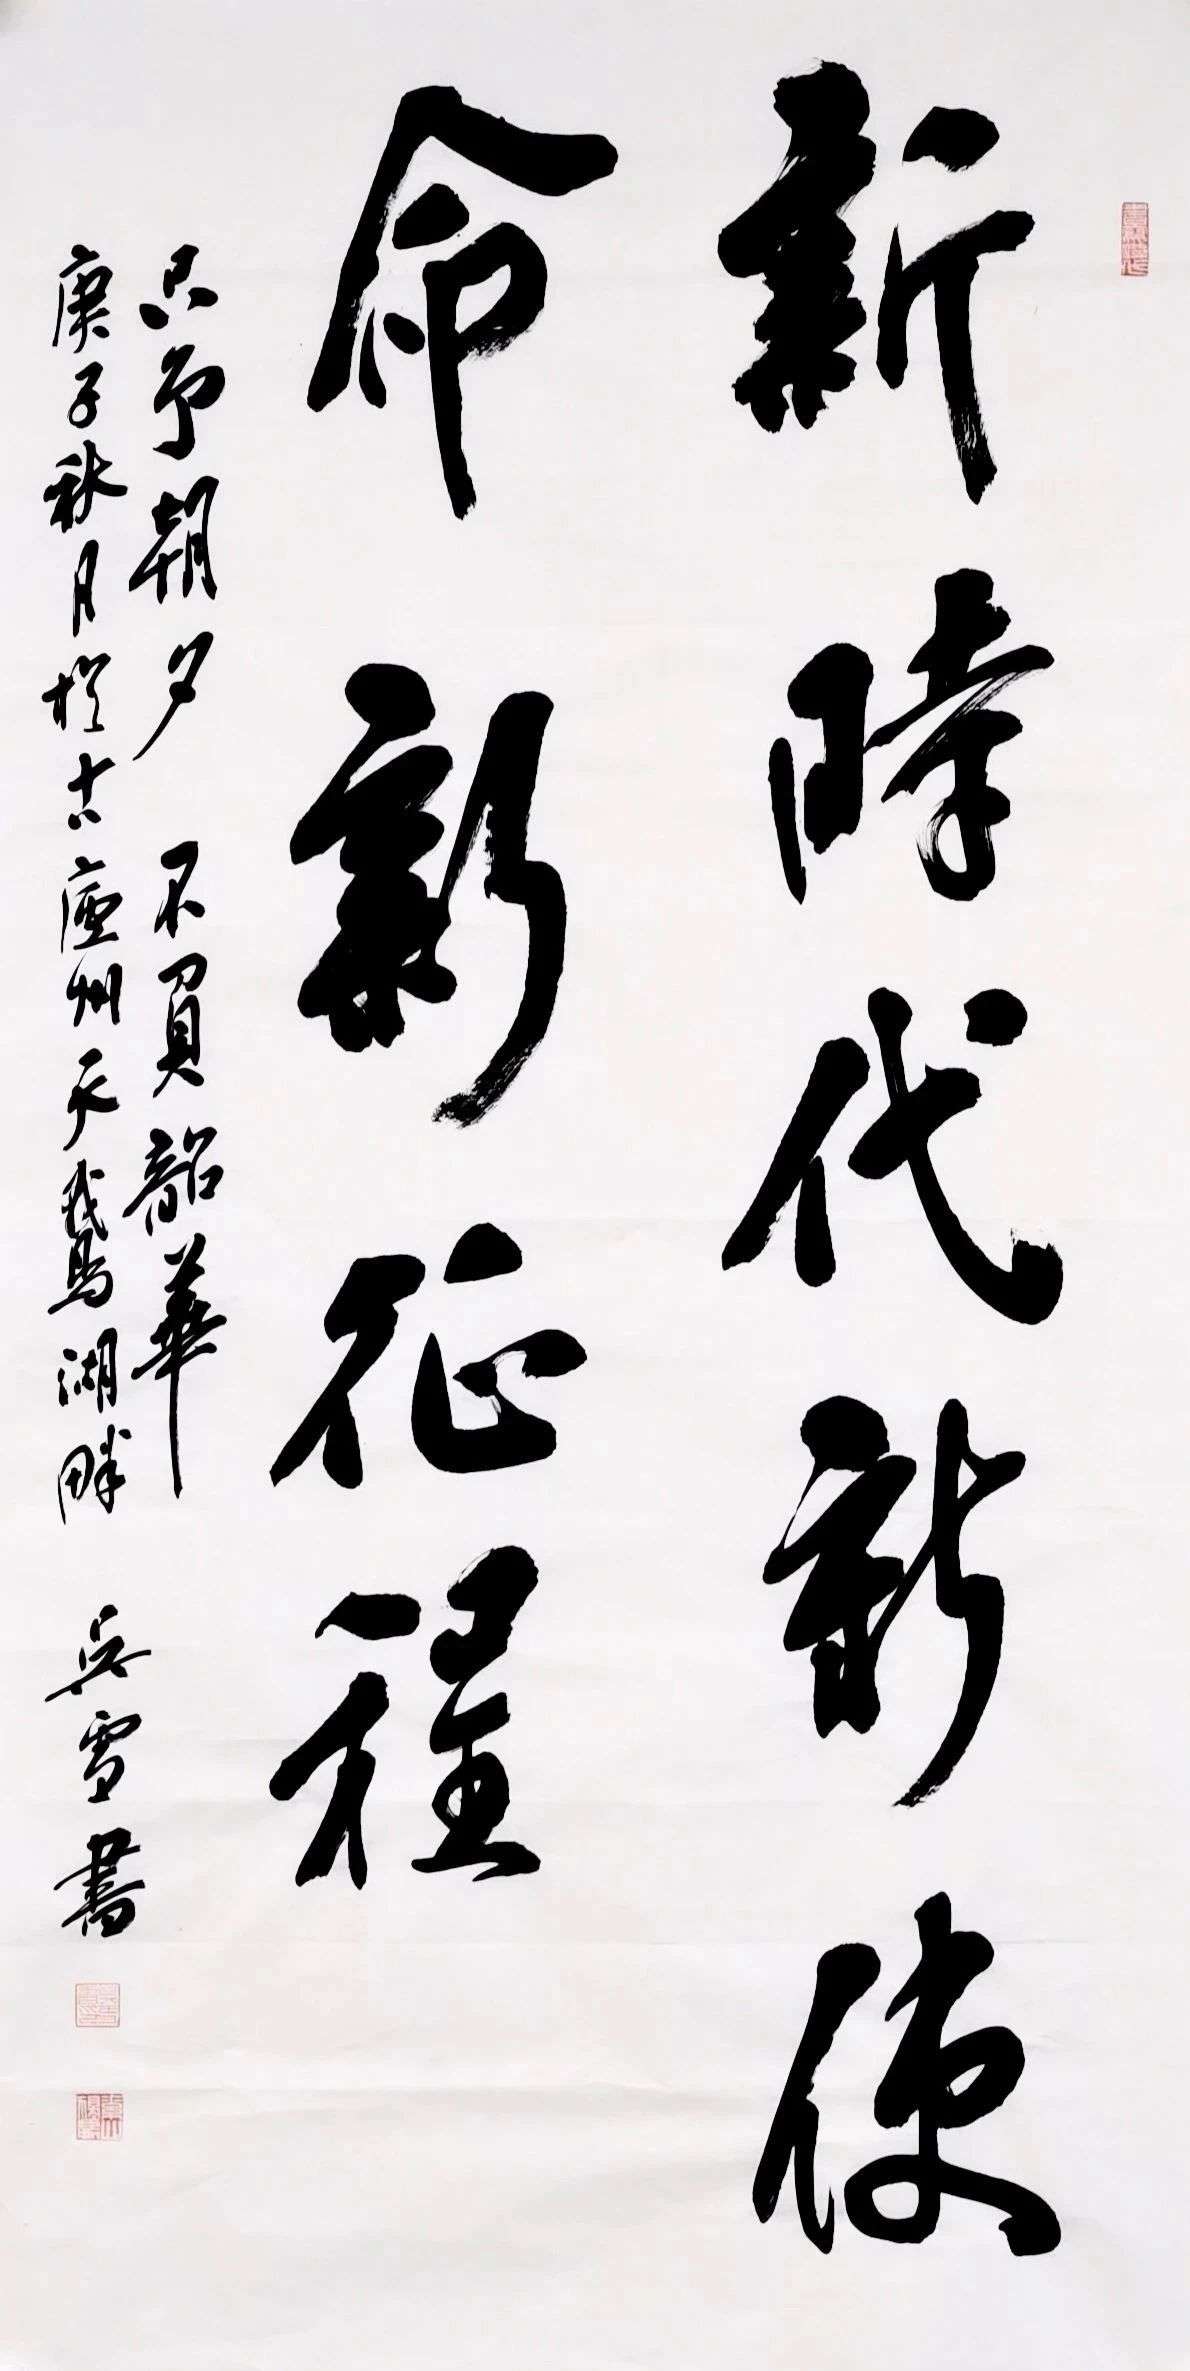 新時代新使
命新征程
只争朝夕不負韶華
庚子秋月於古廬州天鵝湖畔 吳雪書